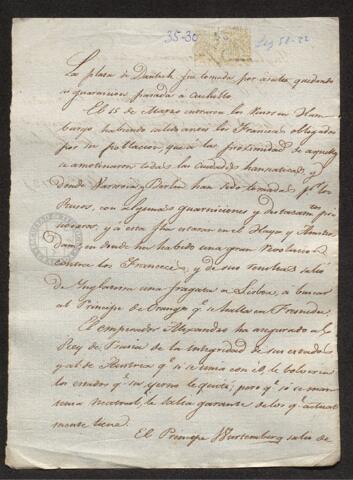 35-30
Leg 58-22
La plaza de Dantzik fue tomada por asalto, quedando
su guarnicion pasada a cuchillo.
El 15 de Marzo entraron los Rusos en Ham-
burgo habiendo salido antes los Franceses obligados
por su poblacion, que a la proximidad de aquellos
se amotinaron todas las ciudades hanseaticas, y
donde Varsovia, y Berlin han sido tomadas pr. los
Rusos, con algunas guarniciones y destacamtos. pri-
sioneros, y a esta fha estaran en el Haya, y Amster-
dam, en donde ha habido una gran Revolucion
contra los Franceses, y de sus resultas salio
de Inglaterra una fragata a Lisboa, a buscar
al Principe de Orange qe. se halla en Freneda.
El emperador Alexandro ha asegurado al
Rey de Prusia de la integridad de sus estados
y al de Austria qe. si se unia con el, le bolveria
los estados qe. su yerno le quitó; pero qe. si se man-
tenia neutral, le salia garante de los qe. actual-
mente tiene.
El Principe Wurtemburg salio de